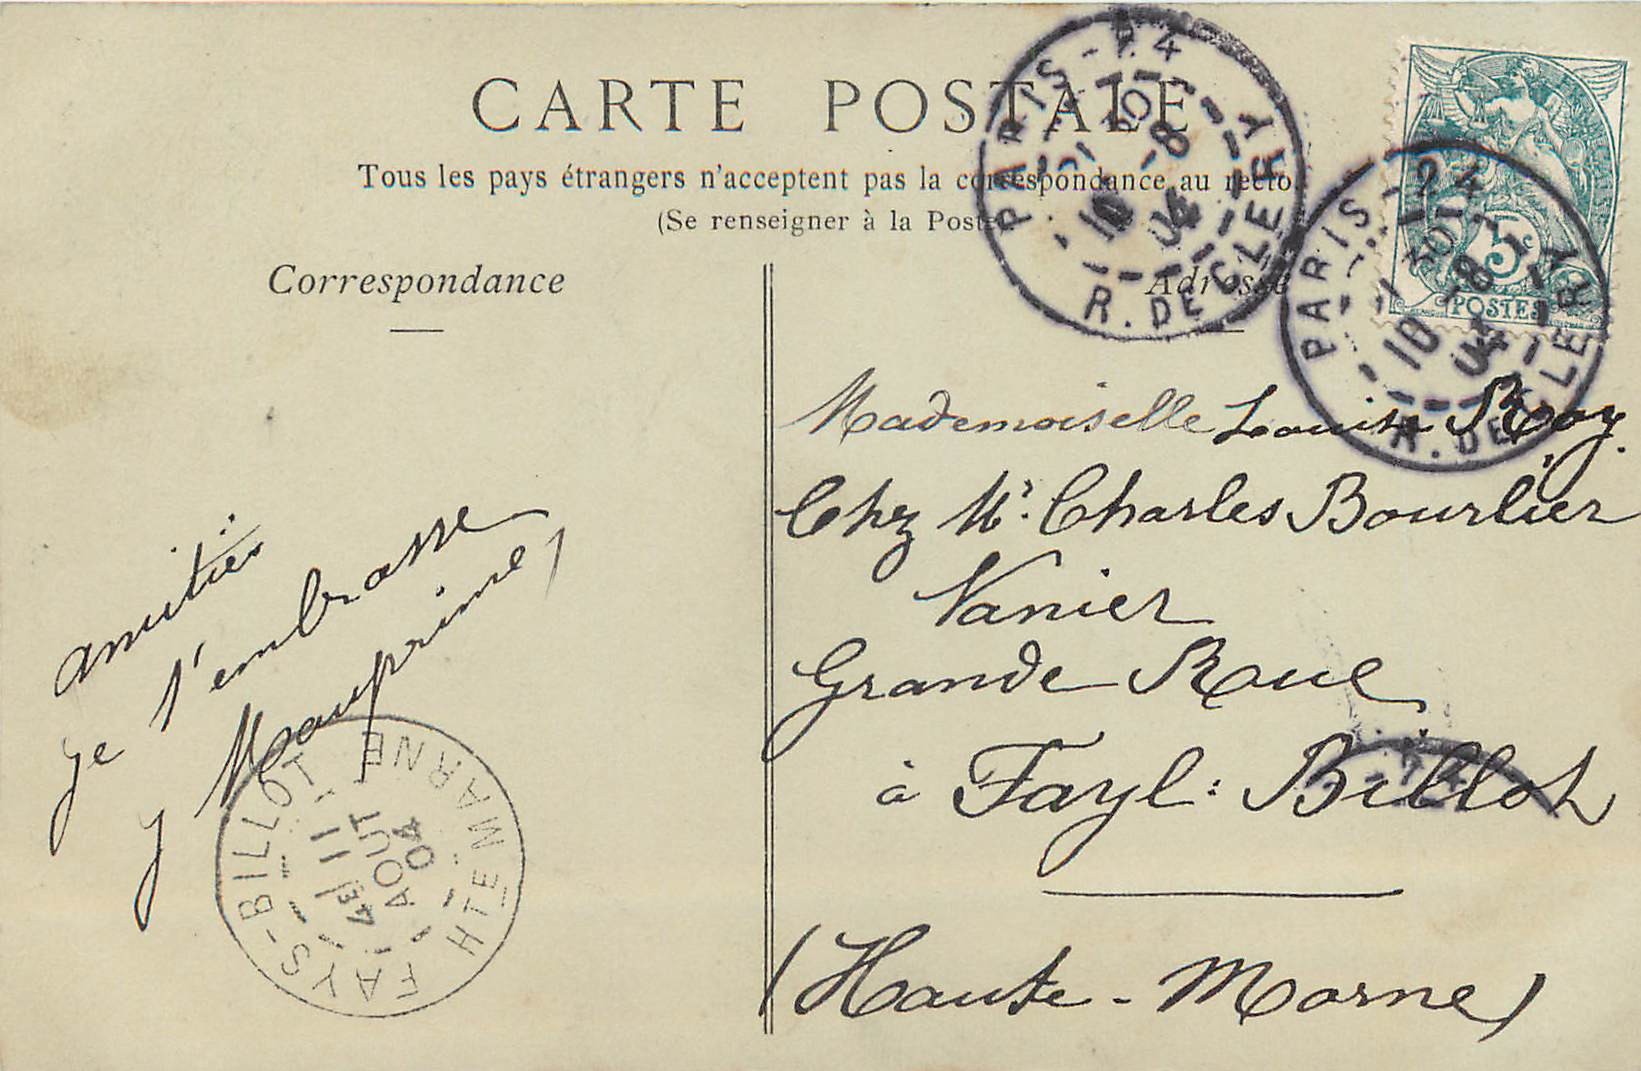 CARTE POSTALE
Tous les pays étrangers n'acceptent pas la correspondance au recto
(Se renseigner à la Poste)
Correspondance
Adresse
PARIS - 24
R. DE CLERY
10 -8
04
PARIS 24
R. DE CLERY
10 -8
04
5c
POSTES
amitiés
je t'embrasse
y Mauprime
Mademoiselle Louise Roy.
Chez Mr. Charles Bourlier
Vanier
Grande Rue
à Fayl-Billot
(Haute-Marne)
FAYS-BILLOT
HTE MARNE
4E 11
AOUT
04